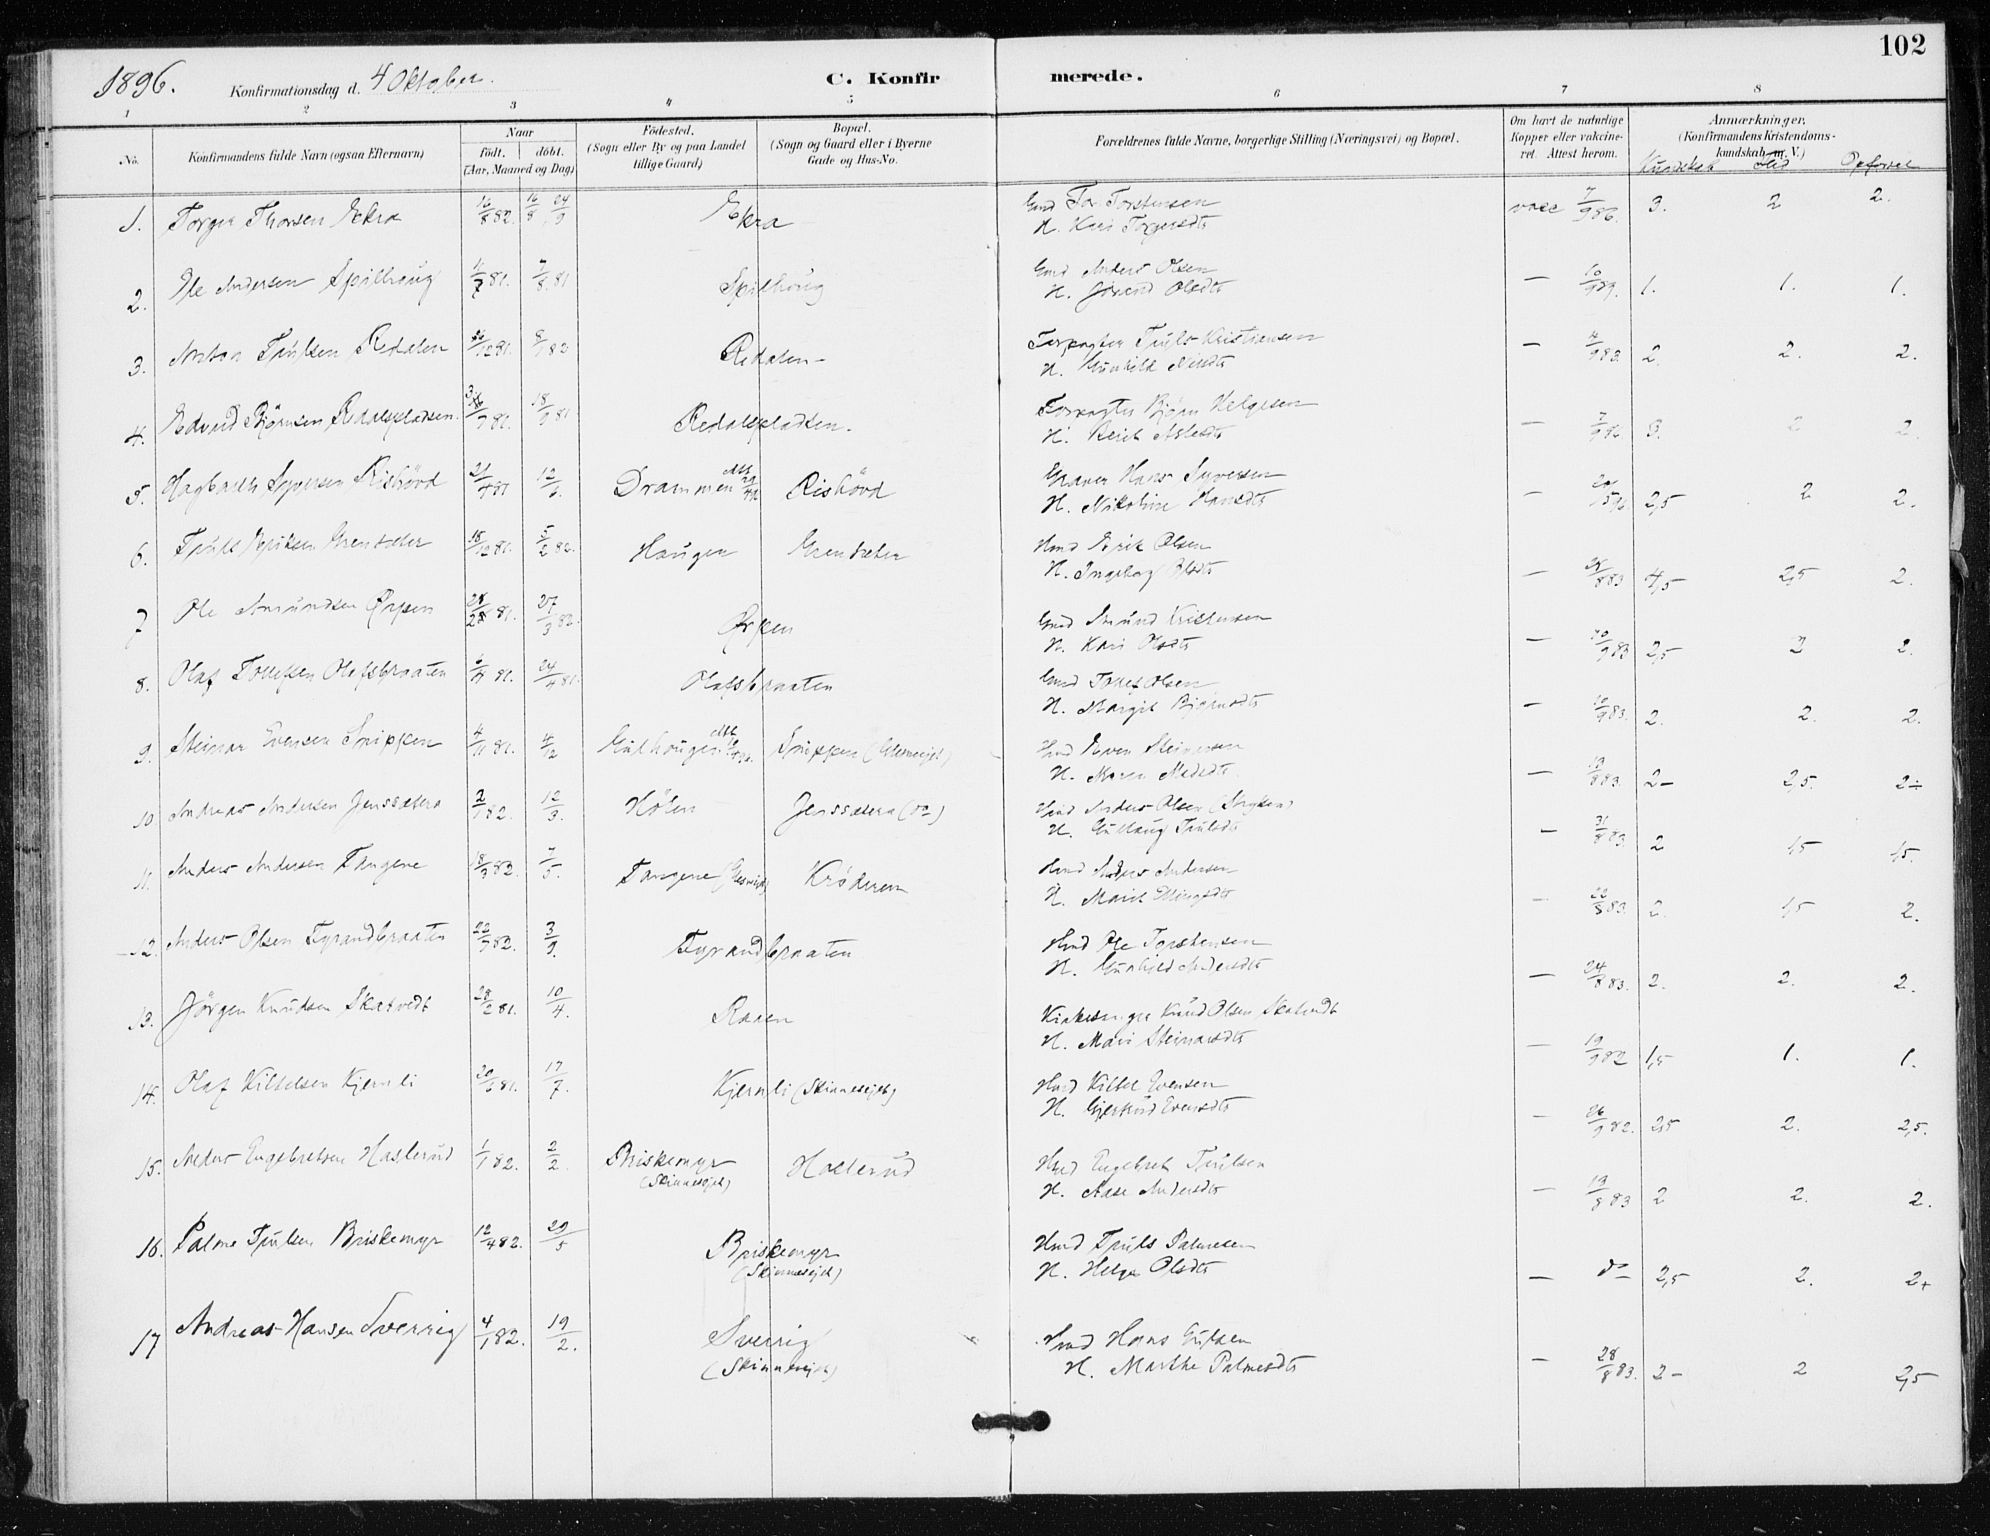 102
1896. Konfirmationsdag d. 4 Oktober. C. Konfirmerede.
1 2 3 4 5 6 7 8
No. Konfirmandens fulde Navn (ogsaa Efternavn) Naar født. døbt. (Aar, Maaned og Dag) Fødested. (Sogn eller By og paa Landet tillige Gaard) Bopæl. (Sogn og Gaard eller i Byerne Gade og Hus-No. Forældrenes fulde Navne, borgerlige Stilling (Næringsvei) og Bopæl. Om havt de naturlige Kopper eller vakcineret. Attest herom. Anmærkninger. (Konfirmandens Kristendomskundskab m. V.)
Kundskab Flid Opførsel
1. Torger Thorsen Ekra 16/8 82. Ekra Gmd Tor Torstensen vacc 7/9 86. 3. 2 2.
H. Kari Torgersdtr
2. Ole Andersen Spilhaug 7/8 81 Spilhoug Gmd Anders Olsen — 1. 1. 1.
H. Jørand Olsdtr
3. Anton Trulsen Redalen 12 81. Redalen — Forpagter Truls Kristiansen — 4/9 83. 2. 2. 2.
H. Gunhild
4. Edvard Bjørnsen Redalspladsen 18/9 81 Redalspladsen. Forpagter Bjørn Helgesen — 7/9 86 3. 2 2.
H. Berit Asledtr
5. Hagbarth Syversen Rishövd 21/4 81 12/6. Drammen Rishövd Graver Hans Syversen — 2,5 2 2.
H. Nikoline Hansdtr
6. Truls Eriksen Grensæter 18/12 81. 5/2 82. Haugen Grensæter Hmd Erik Olsen — 28/8 83 4,5 2,5 2.
H. Ingeborg Olsdtr
7 Ole Amundsen Ørpen 28/12 81. 27/3 82. Ørpen Gmd Amund Kristensen — 10/9 83 2,5 2 2.
H. Kari Olsdtr
8. Olaf Tollefsen Olafsbraaten 24/4 81. Olafsbraaten Gmd Tollef Olsen — 10/9 83. 2. 2. 2.
H. Margit Bjørnsdtr
9. Steinar Evensen Snippen 4/11 81. 4/12 Gulhaugen Snippen (Glesneejet) Hmd Even Steinarsen — 13/8 83. 2 — 2,5. 2÷
H. Maren
10 Andreas Andersen Jenssætra 2/1 82. 12/3. Hølen Jenssætera (do) Hmd Anders Olsen — 31/8 83. 2 1,5 1,5.
H. Gullaug Trulsdtr
11. Anders Andersen Tangene 18/3 82. 7/5. Tangene (Glesneejet) Krøderen Hmd Anders Andersen — 22/8 83. 2. 1,5 2.
H. Marit
12. Anders Olsen Tyrandbraaten 22/7 82. 3/9. Tyrandbraaten Hmd Ole Torstensen — 24/8 83. 2. 2. 2.
H. Gunhild Andersdtr
13. Jörgen Knudsen Skatvedt 28/2 81. 10/4. Raaen Kirkesanger Knud Olsen Skatvedt — 19/9 82 1,5 1. 1.
H. Mari Steinarsdtr
14. Olaf Kittelsen Kjernli 20/6 81. 17/7. Kjernli (Skinnesejet) Hmd Kittel Evensen — 26/9 82. 2,5 2. 2,5.
H. Gjertrud Evensdtr
15. Anders Engebretsen Haslerud 1/1 82. 2/2. Briskemyr (Skinnesejet) Haslerud Hmd Engebret Trulsen — 19/8 83 2 2. 2.
H. Aase Andersdtr
16. Palme Trulsen Briskemyr 12/4 82. 29/5 Briskemyr (Skinnesejet) Hmd Truls Palmesen — do 2,5 2. 2+
H. Helga Olsdtr
17 Andreas Hansen Sverrig 4/1 82. 19/2. Sverrig (Skinnesejet) Hmd Hans — 28/8 83. 2 — 2 2,5
H. Marthe Palmesdtr